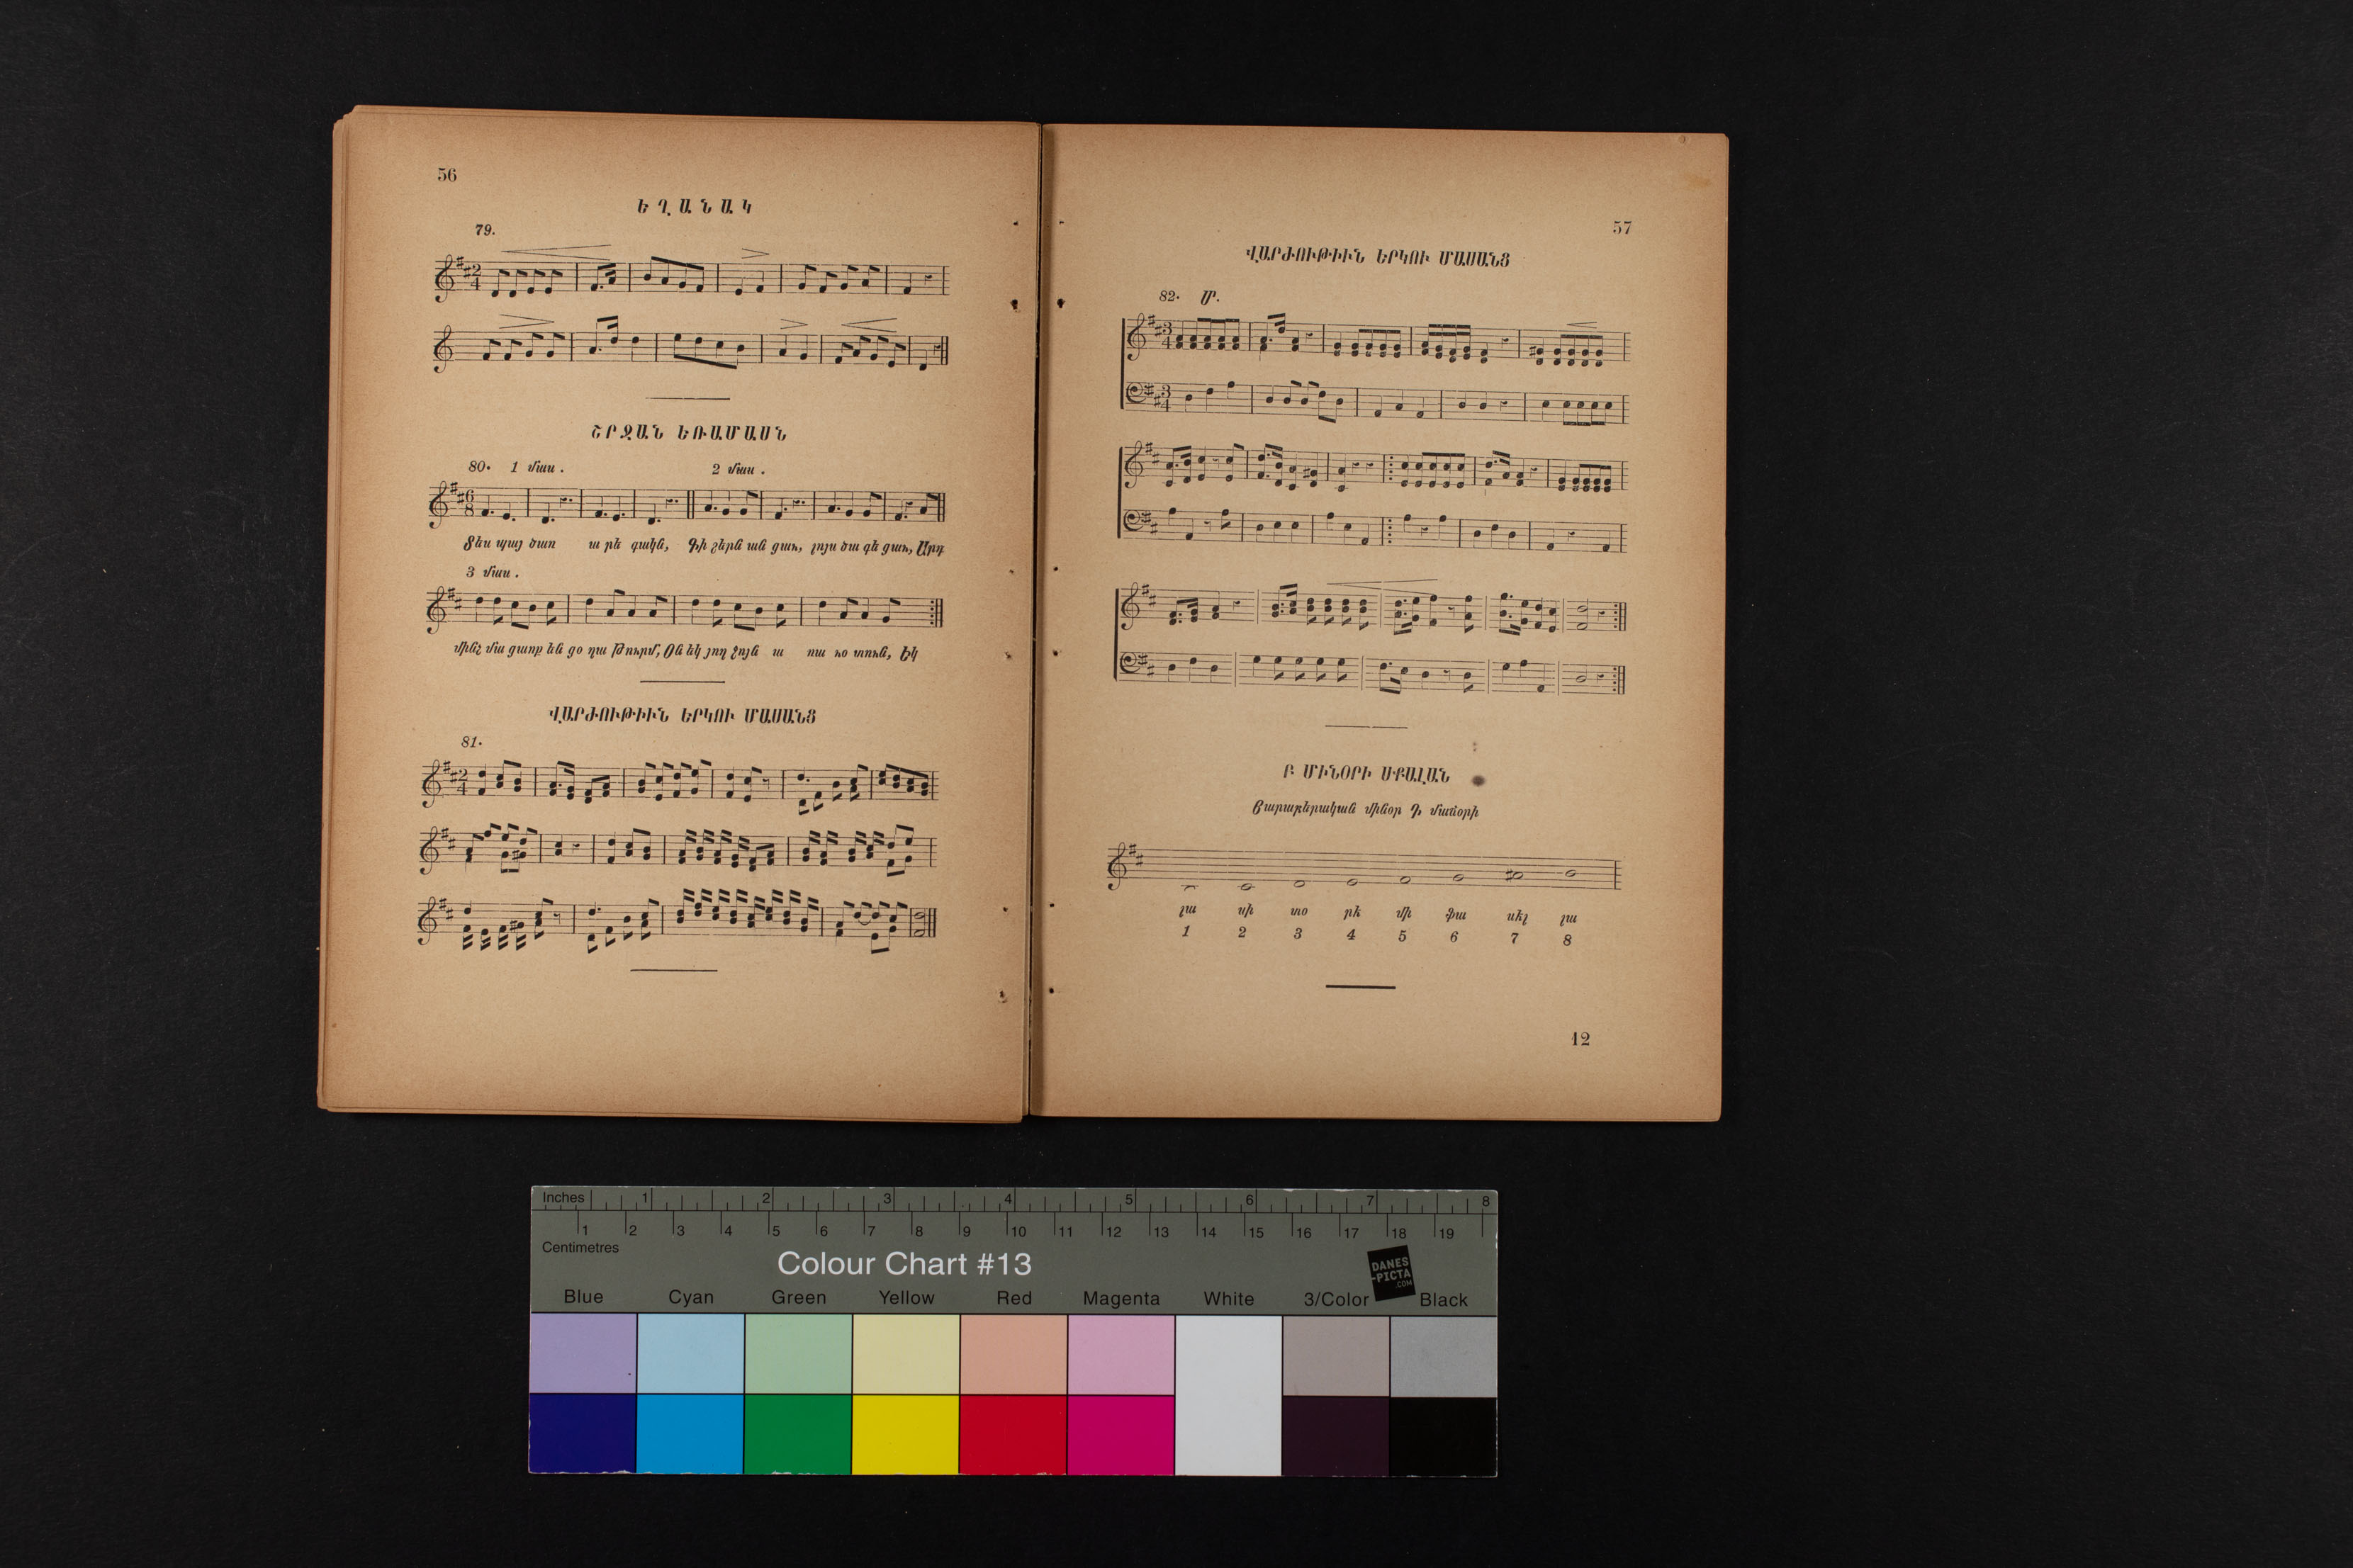 56
ԵՂԱՆԱԿ
79.
ՇՐՋԱՆ ԵՌԱՄԱՍՆ
80. 1 մաս. 2 մաս.
Տես պայ ծառ ա րե գակն, Գի շերն ան ցաւ, լոյս ծա գե ցաւ, Արդ
3 մաս.
մինչ մա ցառք են ցօ ղա թուրմ, Օն եկ
ՎԱՐԺՈՒԹԻՒՆ ԵՐԿՈՒ ՄԱՍԱՆՑ
81.
57
ՎԱՐԺՈՒԹԻՒՆ ԵՐԿՈՒ ՄԱՍԱՆՑ
82. Մ.
Բ ՄԻՆՕՐԻ ՍՔԱԼԱՆ
Յարաբերական մինօր Դ մաժօրի
լա սի տօ րե մի ֆա սել լա
1 2 3 4 5 6 7 8
12
Inches 1 2 3 4 5 6 7 8
1 2 3 4 5 6 7 8 9 10 11 12 13 14 15 16 17 18 19
Centimetres
Colour Chart #13
DANES
-PICTA
.COM
Blue Cyan Green Yellow Red Magenta White 3/Color Black